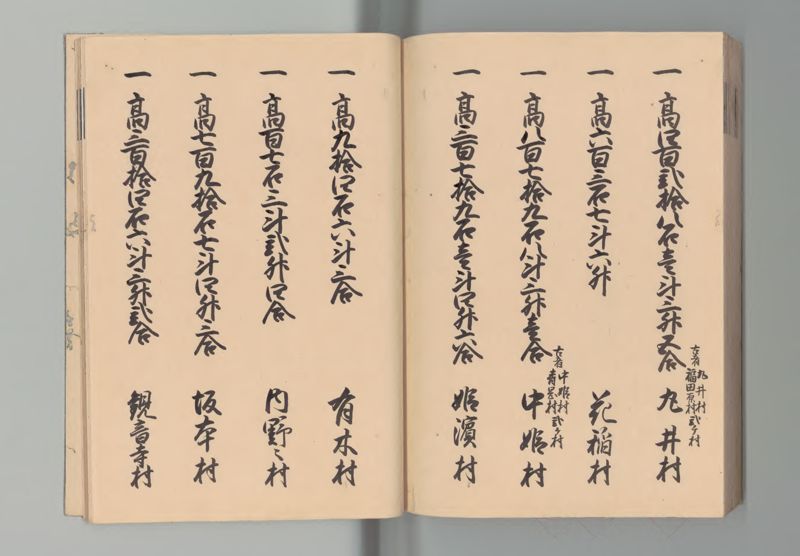 一 高四百弐拾八石壱斗三升五合 丸井村
古者 丸井村
福田原村 弐ケ村
一 高六百三石七斗六升 花稲村
一 高八百七拾九石八斗三升壱合 中姫村
古者 中姫村
青岡村 弐ケ村
一 高三百七拾九石壱斗四升六合 姫濱村
一 高九拾四石六斗三合 有木村
一 高百七石三斗弐升四合 内野々村
一 高七百九拾石七斗四升三合 坂本村
一 高三百拾四石六斗三升弐合 観音寺村